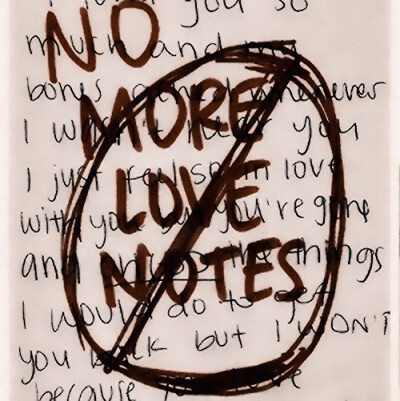 NO
MORE
LOVE
NOTES
you so
much and my
bones ached whenever
I wasn't near you
I just feel so in love
with you but you're gone
and the things
I would do to get
you back but I WON'T
because you love